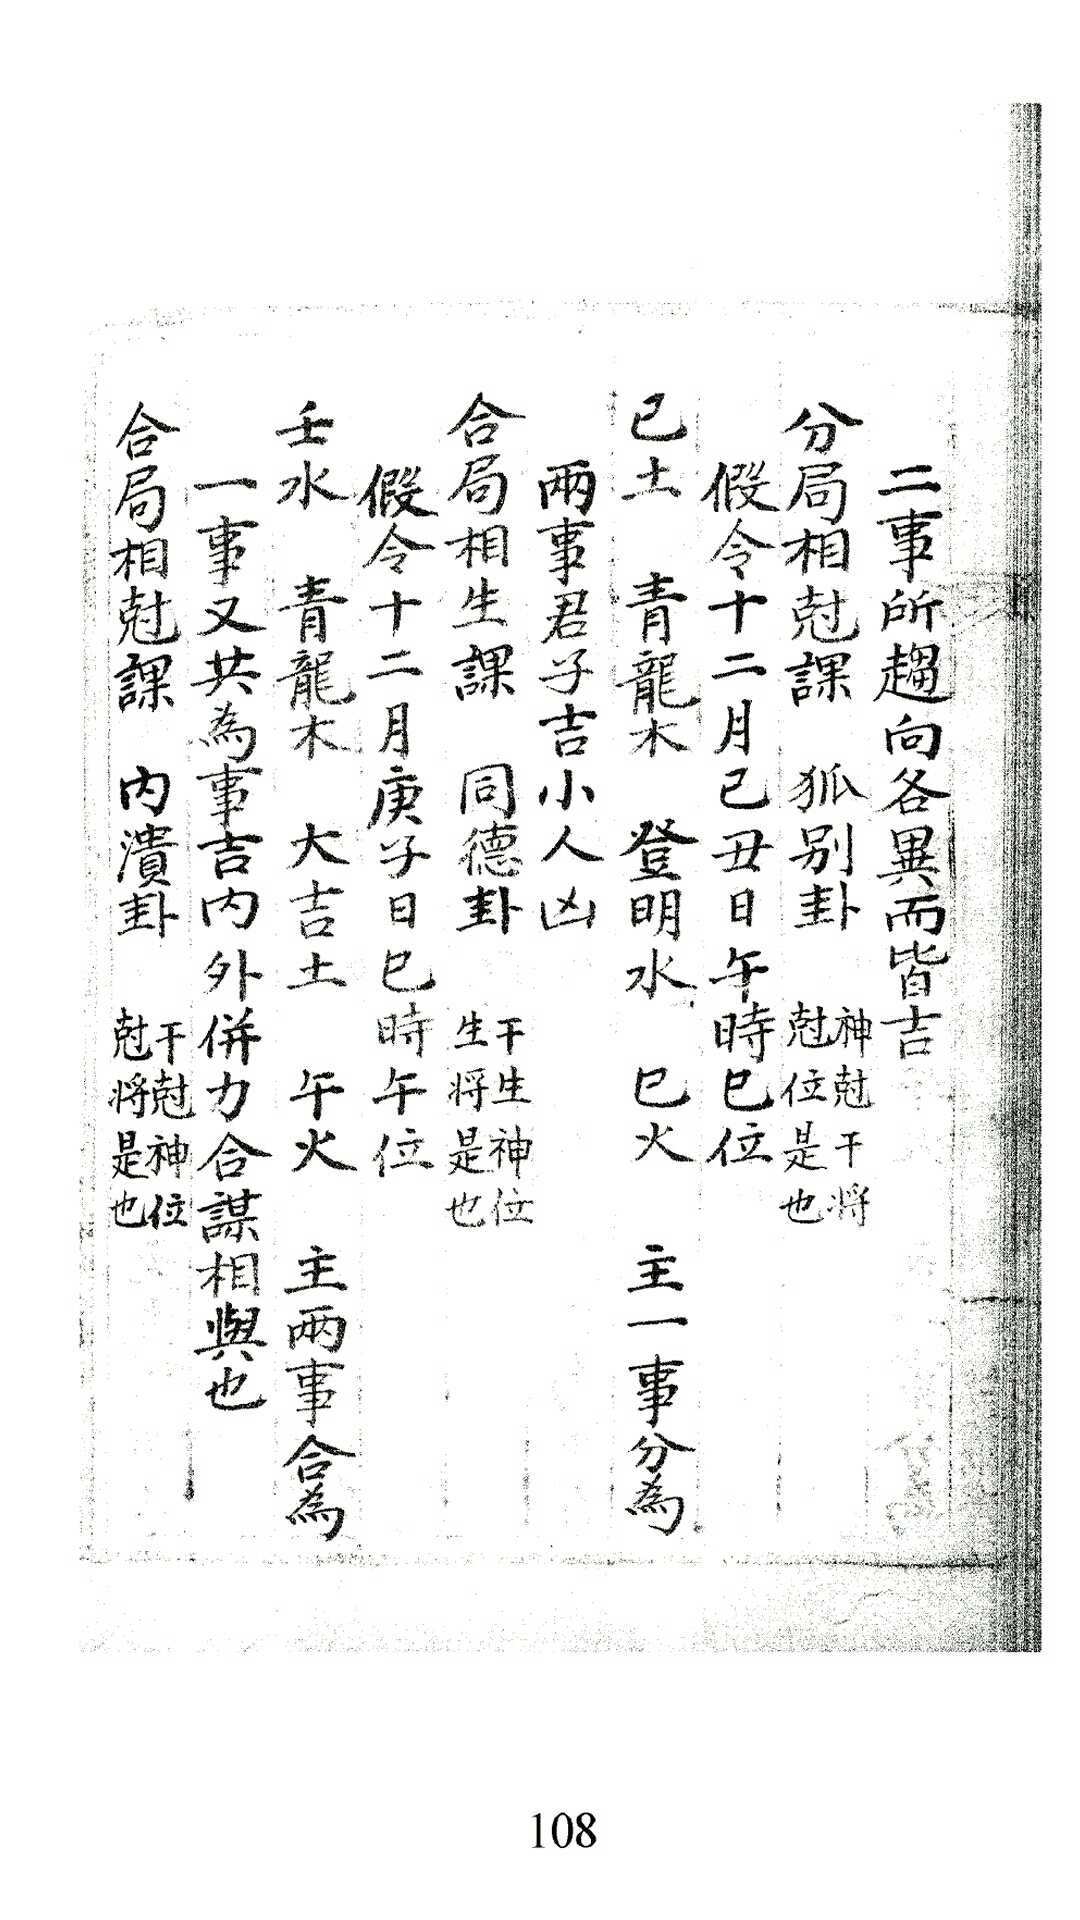 二事所趨向各異而皆吉
分局相尅課 狐別卦 神尅干將尅位是也
假令十二月己丑日午時巳位
己土 青龍木 登明水 巳火 主一事分為
兩事君子吉小人凶
合局相生課 同德卦 干生神位生將是也
假令十二月庚子日巳時午位
壬水 青龍木 大吉土 午火 主兩事合為
一事又共為事吉內外併力合謀相與也
合局相尅課 內潰卦 干尅神位尅將是也
108